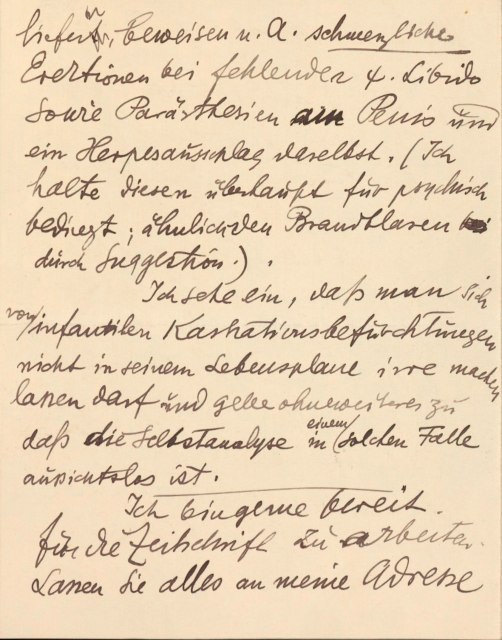 liefert, beweisen u. A. schmerzliche
Erektionen bei fehlender ψ. Libido
sowie Parästhesien am Penis und
ein Herpesausschlag daselbst. (Ich
halte diesen überhaupt für psychisch
bedingt; ähnlich den Brandblasen
durch Suggestion.).
Ich sehe ein, daß man sich
von infantilen Kastrationsbefürchtungen
nicht in seinem Lebensplane irre machen
lassen darf und gebe ohneweiteres zu
daß die Selbstanalyse in einem solchen Falle
aussichtslos ist.
Ich bin gerne bereit
für die Zeitschrift zu arbeiten.
Lassen Sie alles an meine Adresse